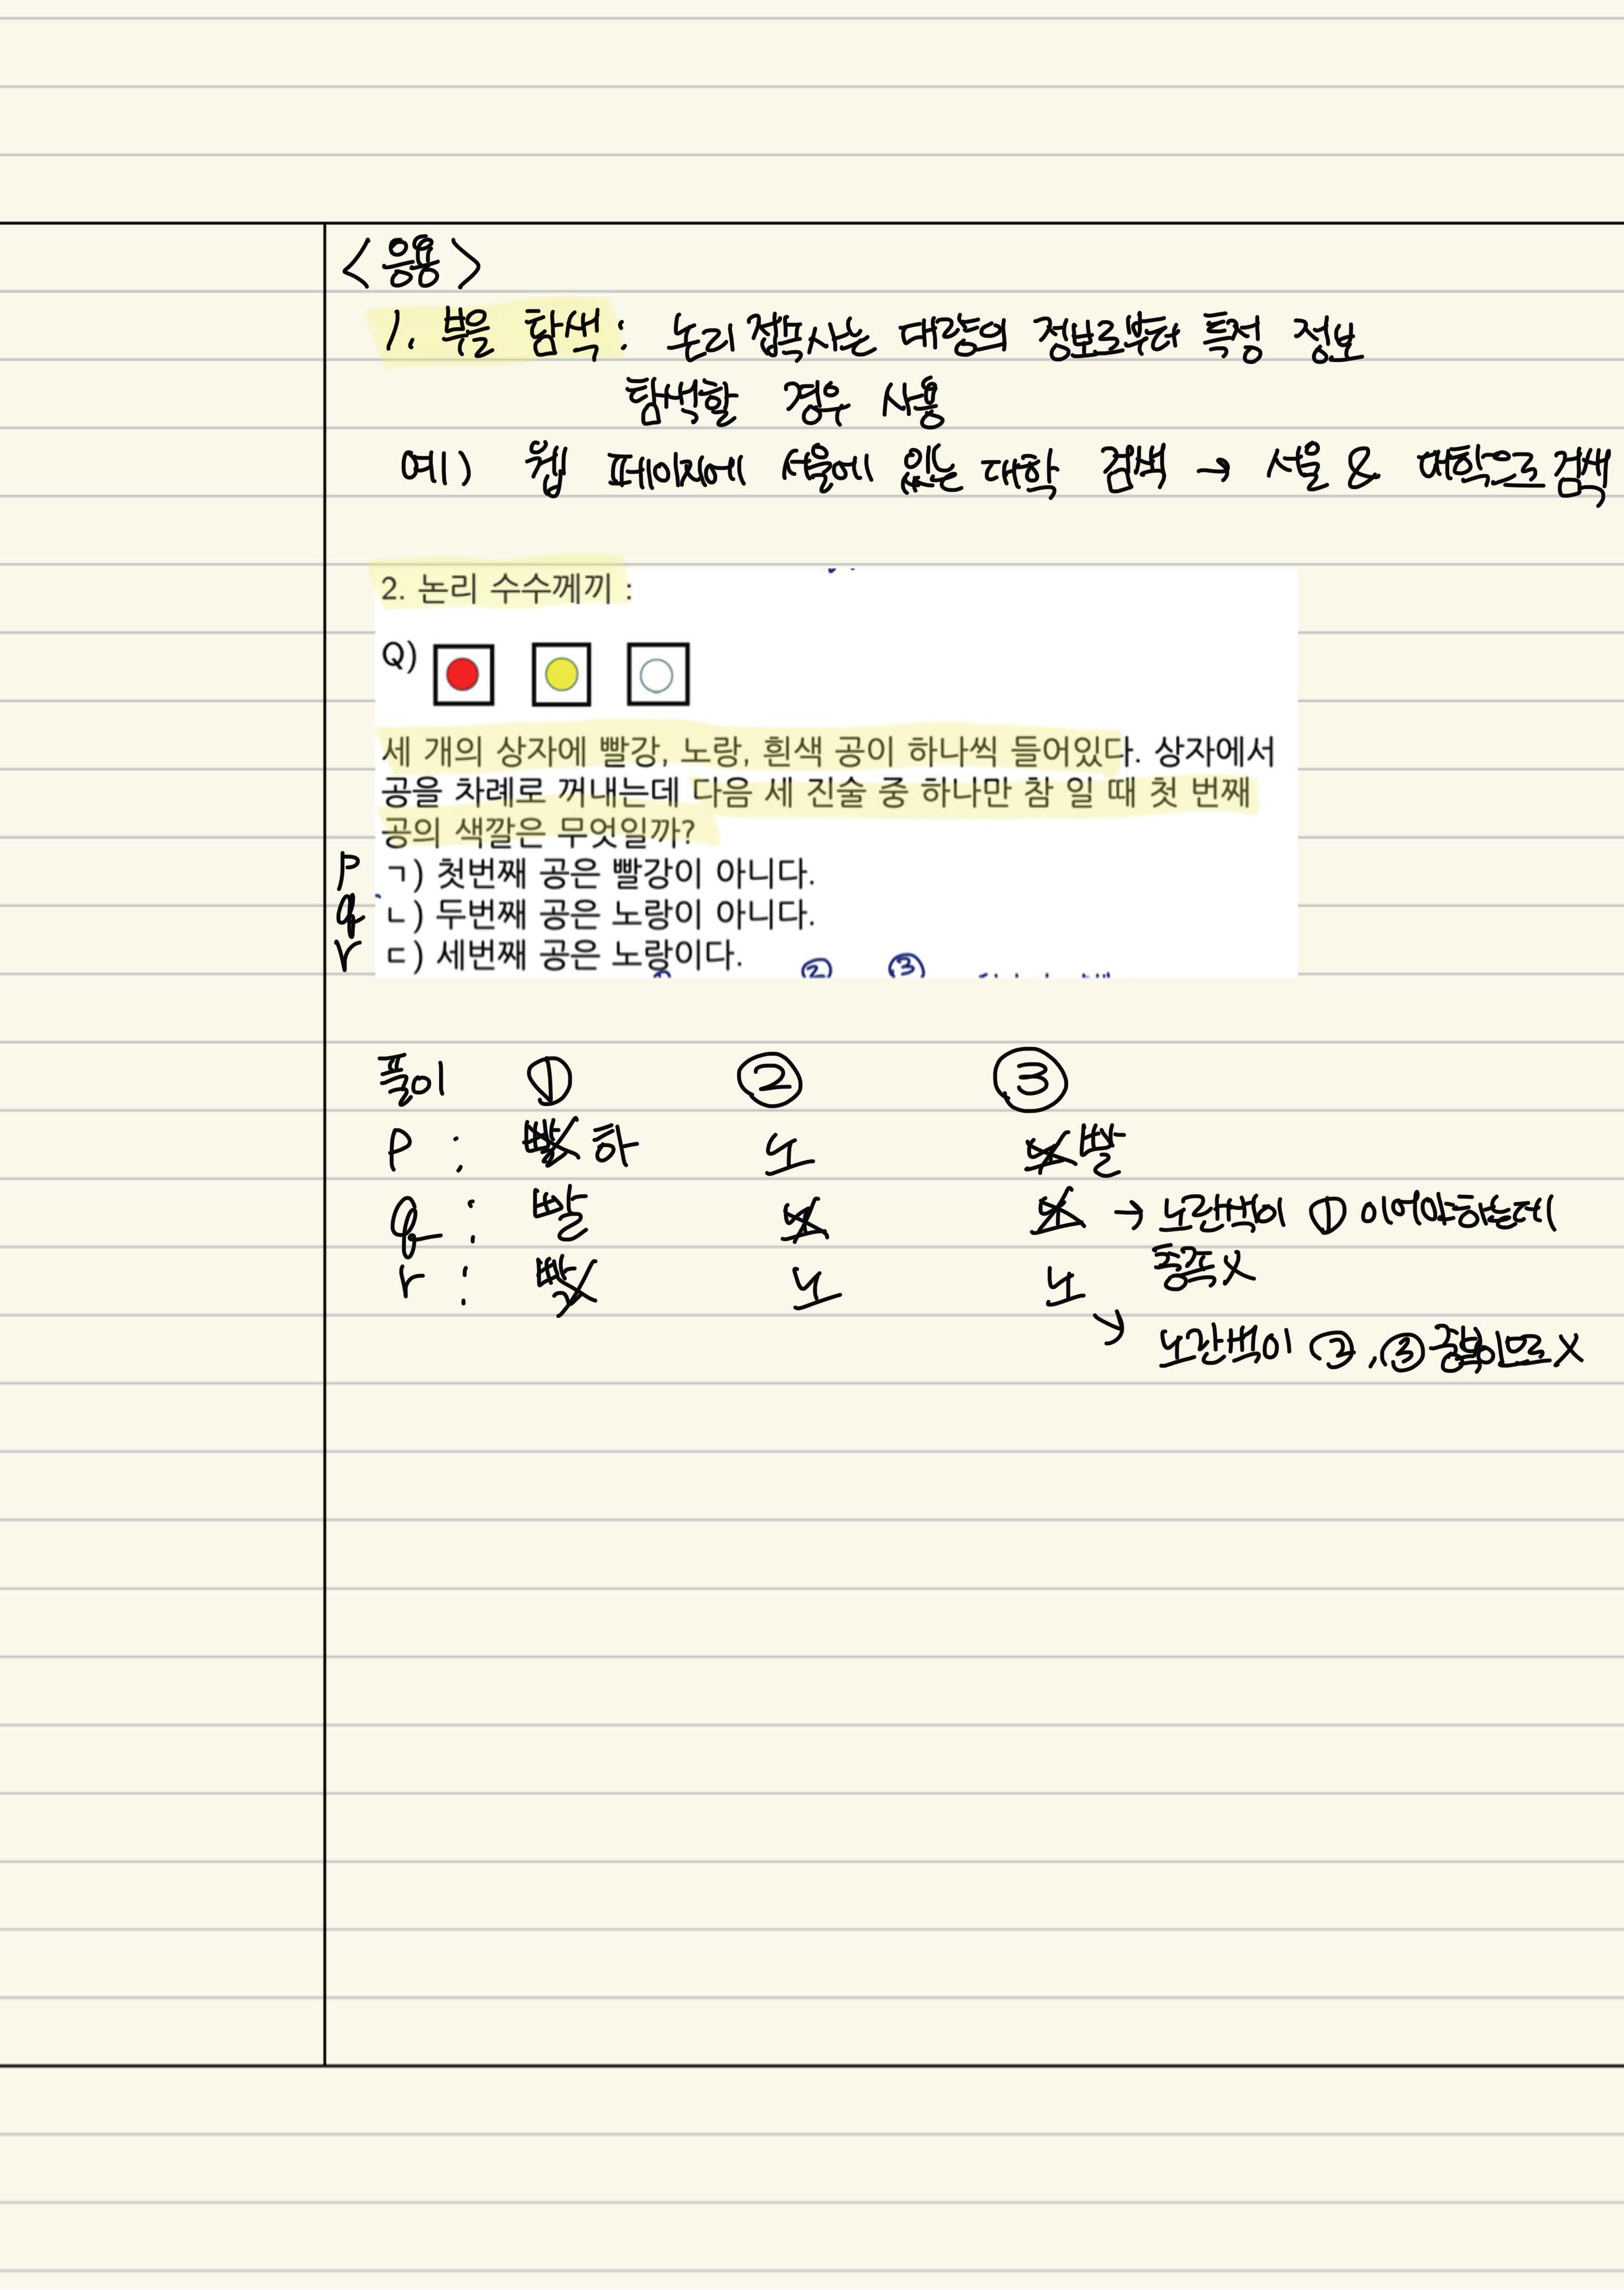 <응용>
1. 부울 탐색 : 논리 접프사는 대량의 정보로부터 특정 정보
탐색할 경우 사용
예) 웹 페이지에 서울에 있는 대학 검색 → 서울 & 대학으로 검색
2. 논리 수수께끼 :
Q)
세 개의 상자에 빨강, 노랑, 흰색 공이 하나씩 들어있다. 상자에서
공을 차례로 꺼내는데 다음 세 진술 중 하나만 참 일 때 첫 번째
공의 색깔은 무엇일까?
P ㄱ) 첫번째 공은 빨강이 아니다.
q ㄴ) 두번째 공은 노랑이 아니다.
r ㄷ) 세번째 공은 노랑이다.
② ③
풀이 ① ② ③
P : 빨 하 노 노 빨
q : 빨 노 노 → 노란색이 ① 이어야하는데
충족X
r : 빨 노 노
↘ 노란색이 ②,③ X